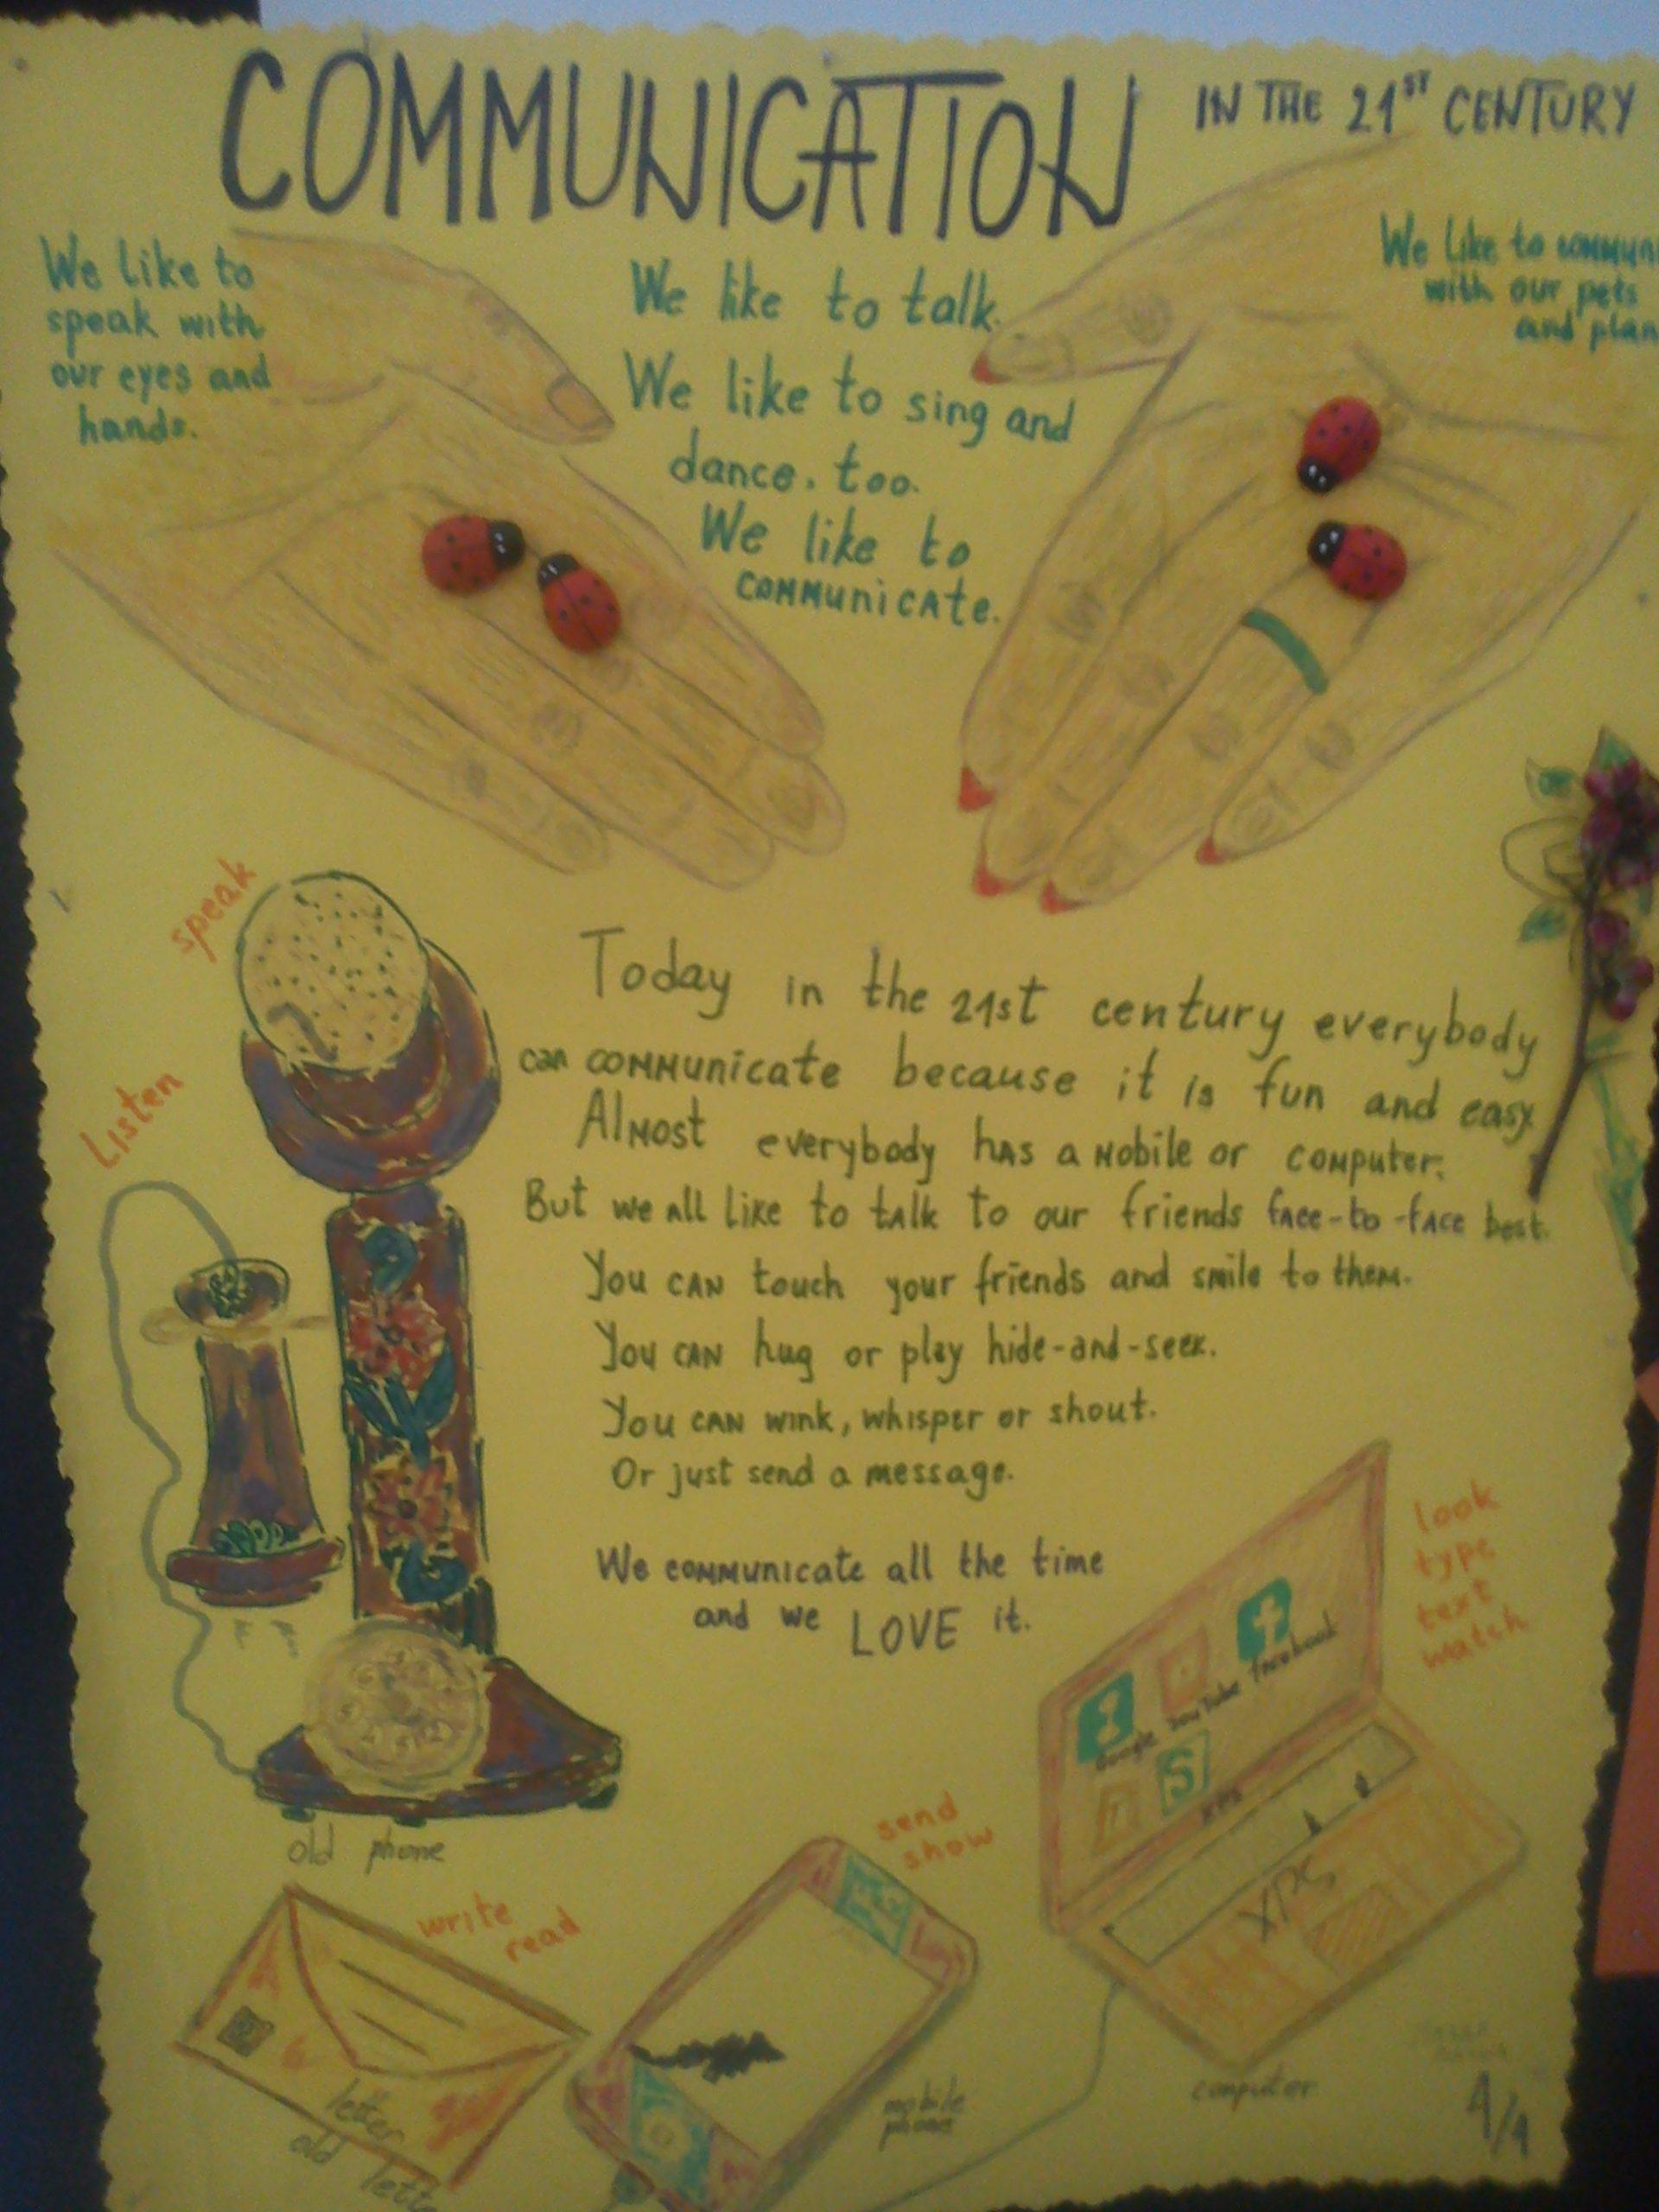 COMMUNICATION IN THE 21ST CENTURY
We like to
speak with
our eyes and
hands.
We like to talk.
We like to sing and
dance. too.
We like to
communicate.
We like to
with our pets
and
speak
Listen
Today in the 21st century everybody
can communicate because it is fun and easy.
Almost everybody has a mobile or computer.
But we all like to talk to our friends face-to-face best.
You can touch your friends and smile to them.
You can hug or play hide-and-seek.
You can wink, whisper or shout.
Or just send a message.
We communicate all the time
and we LOVE it.
look
type
text
watch
Google YouTube facebook
S
XPS
computer
old phone
send
show
mobile
phone
write
read
letter
old
4/4